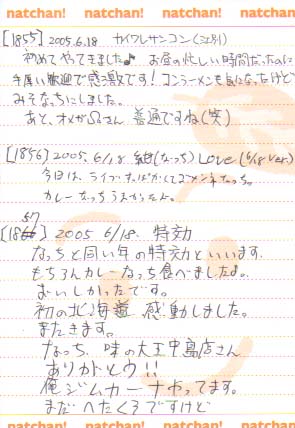 natchan! natchan! natchan! natchan!
[1855] 2005.6.18 カイワレサンコン(江別)
初めてやってきました♪ お昼の忙しい時間だったのに
手厚い歓迎で感激です! コーンラーメンも気になったけど
みそなっちにしました。
あと、オメガさん 普通ですね(笑)
[1856] 2005. 6/18 (なっち) Love (6/18 ver.)
今日は、ライブ
カレーなっちうまかったよ。
57
[18 ] 2005 6/18. 特効
なっちと同い年の特効といいます。
もちろんカレーなっち食べましたよ。
おいしかったです。
初の北海道 感動しました。
またきます。
なっち、味の大王中島店さん
ありがトウ!!
俺ジムカーナやってます。
まだへたくそですけど
natchan! natchan! natchan! natchan!